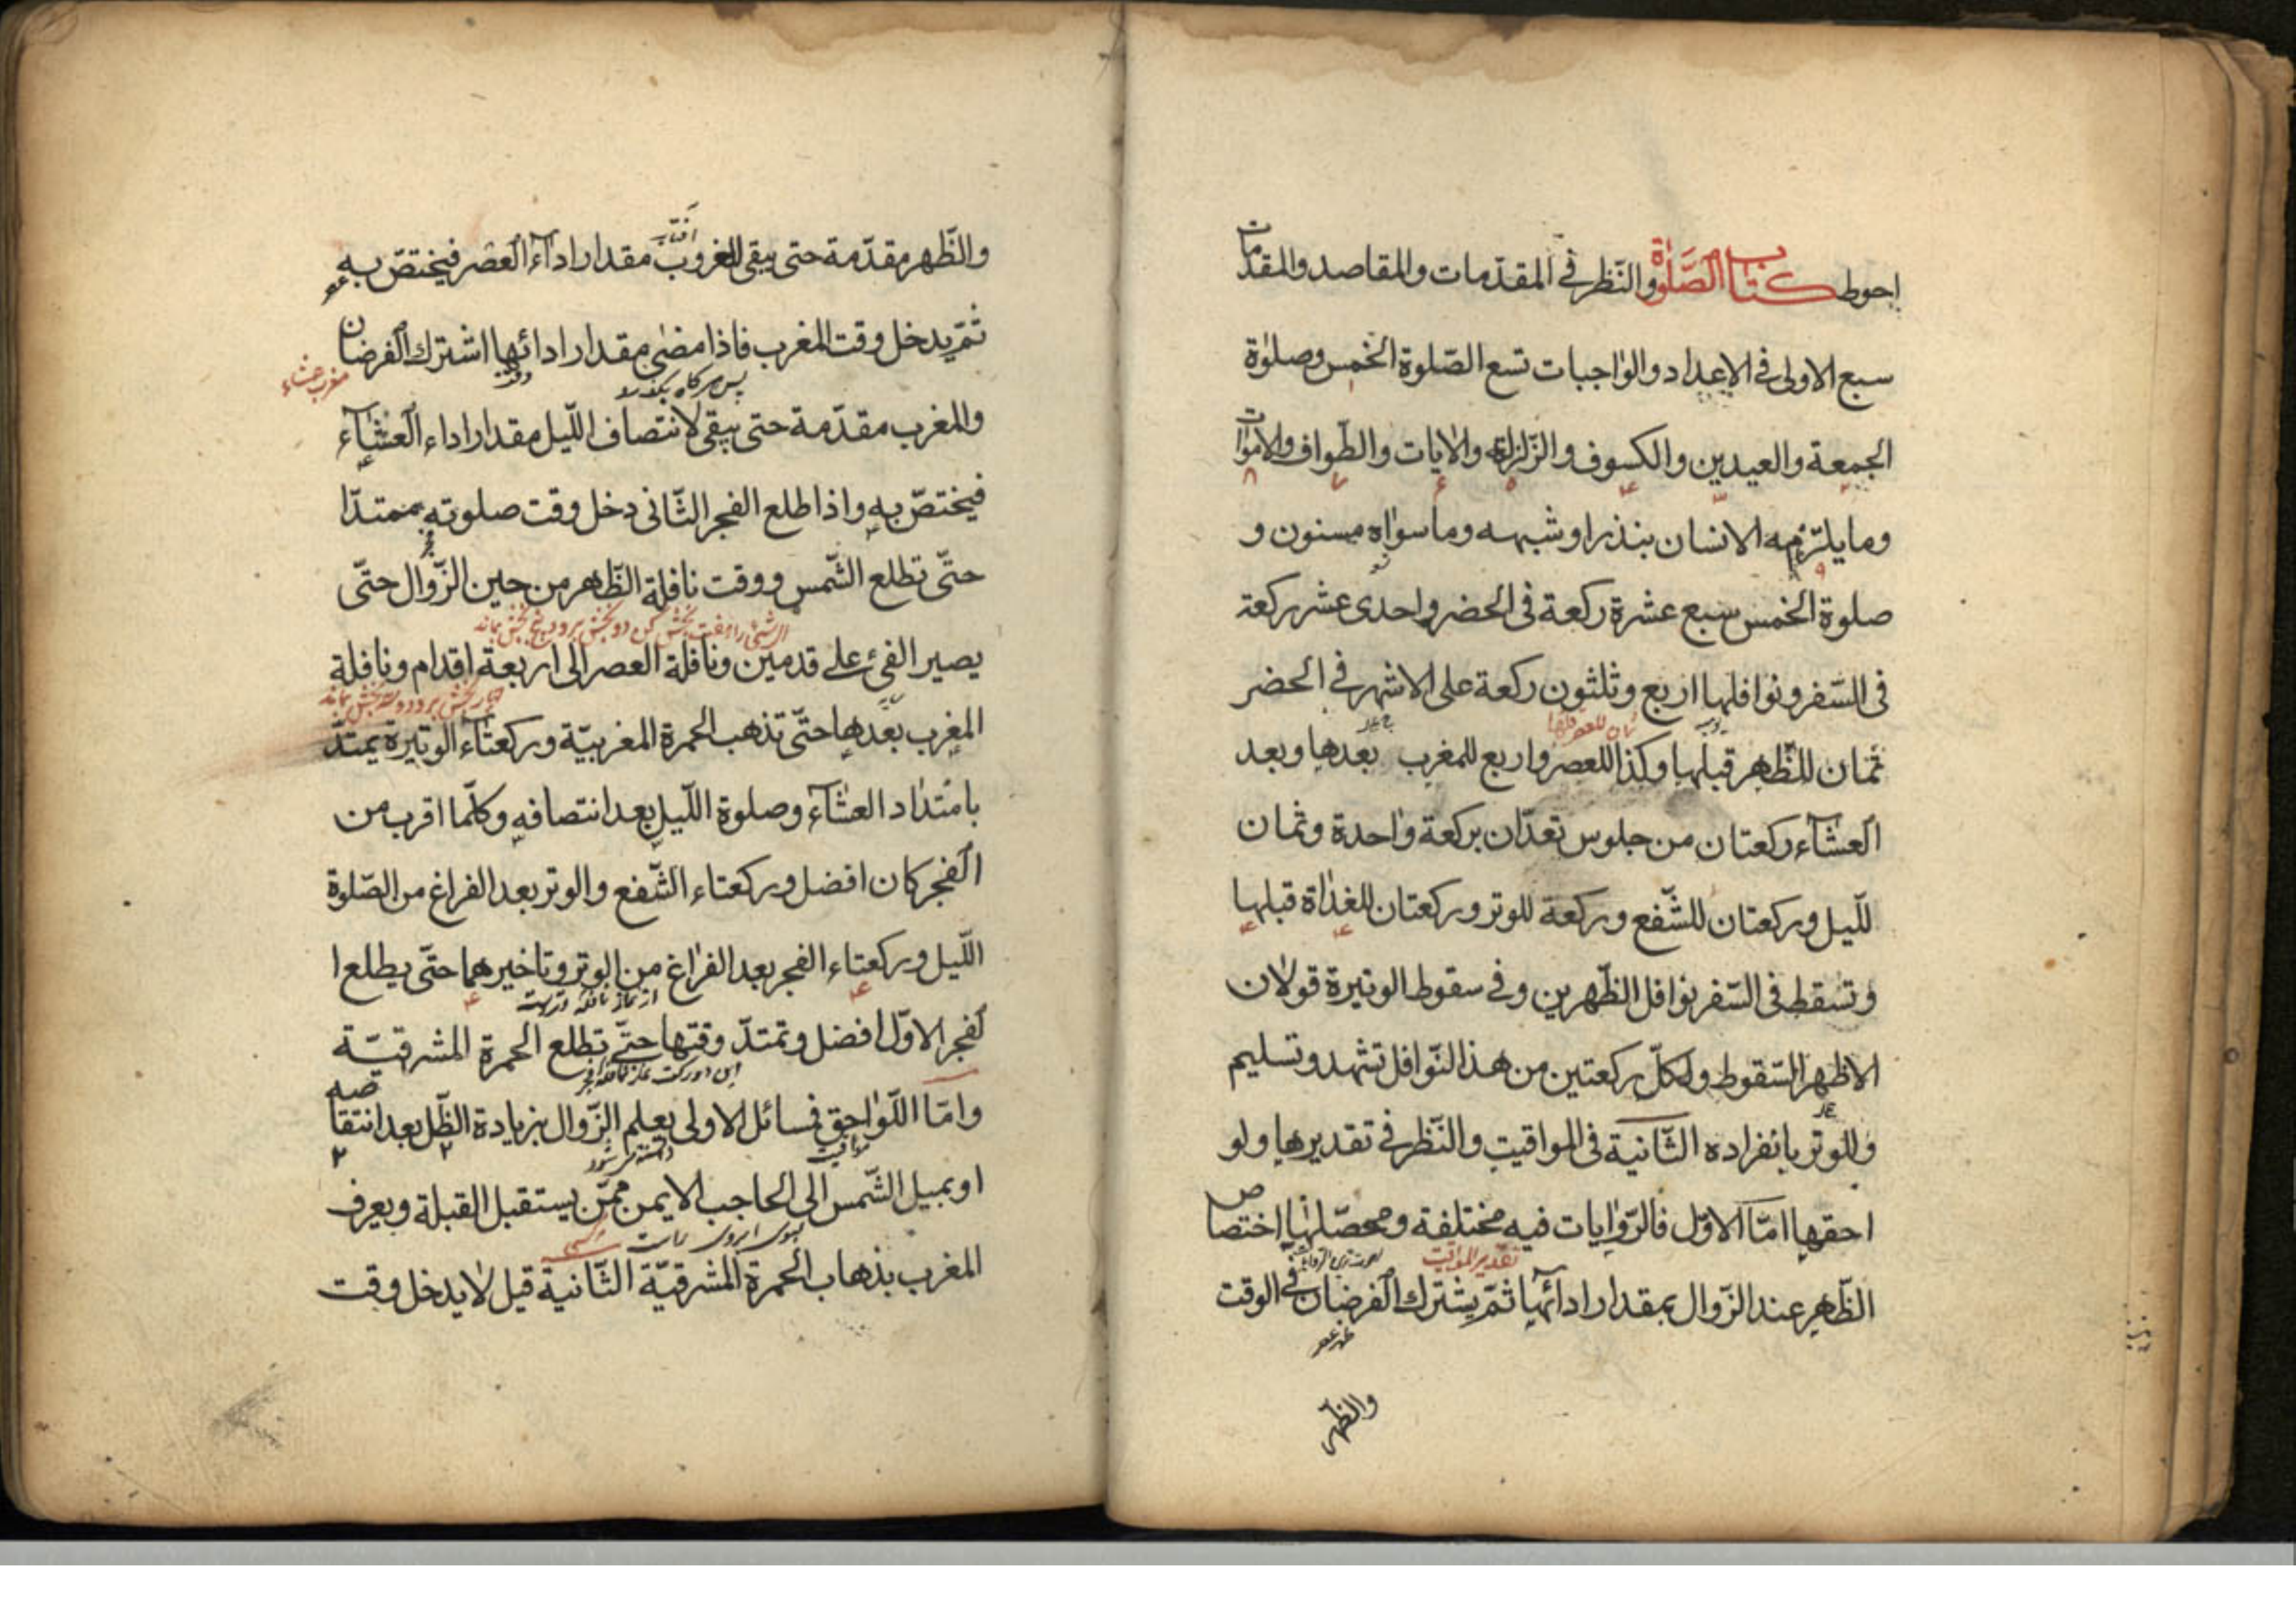 احوط كتاب الصلوة والنّظر فى المقدّمات والمقاصد والمقدّمات
سبع الاولى فى الاعداد والواجبات تسع الصّلوة الخمس وصلوة
الجمعة والعيدين والكسوف والزّلزلة والايات والطّواف والاموات
وما يلتزمه الانسان بنذر او شبهه وما سواه مسنون و
صلوة الخمس سبع عشرة ركعة فى الحضر واحدى عشر ركعة
فى السّفر ونوافلها اربع وثلثون ركعة على الاشهر فى الحضر
ثمان للظّهر قبلها وكذا للعصر واربع للمغرب بعدها وبعد
العشآء ركعتان من جلوس تعدّان بركعة واحدة وثمان
للّيل وركعتان للشّفع وركعة للوتر وركعتان للغداة قبلها
وتسقط فى السّفر نوافل الظّهرين وفى سقوط الوتيرة قولان
الاظهر السّقوط ولكلّ ركعتين من هذ النّوافل تشهد وتسليم
وللوتر بانفراده الثّانية فى المواقيت والنّظر فى تقديرها ولو
احقها امّا الاوّل فالرّوايات فيه مختلفة ومحصّلها اختصاص
تقدير المواقيت
الظّهر عند الزّوال بمقدار ادائها ثمّ يشترك الفرضان فى الوقت
ظهر عصر
والظهر
والظّهر مقدّمة حتى يبقى للغروب مقدار اداء العصر فيختصّ به
افتاب
عصر
ثمّ يدخل وقت المغرب فاذا مضى مقدار ادائها اشترك الفرضان
پس هر گاه بگذرد
مغرب عشاء
والمغرب مقدّمة حتى يبقى لانتصاف اللّيل مقدار اداء العشآء
فيختصّ به واذا طلع الفجر الثّانى دخل وقت صلوته ممتدّا
حتّى تطلع الشّمس ووقت نافلة الظّهر من حين الزّوال حتّى
را هفت بخش كن دو بخش برود پنج بخش بماند
يصير الفئ على قدمين ونافلة العصر الى اربعة اقدام ونافلة
چهار بخش برود و سه بخش بماند
المغرب بعدها حتّى تذهب الحمرة المغربيّة وركعتاء الوتيرة يمتدّ
بامتداد العشآء وصلوة اللّيل بعد انتصافه وكلّما اقرب من
الفجر كان افضل وركعتاء الشّفع والوتر بعد الفراغ من الصّلوة
اللّيل وركعتاء الفجر بعد الفراغ من الوتر وتاخيرهما حتّى يطلع ا
لفجر الاوّل افضل وتمتدّ وقتها حتّى تطلع الحمرة المشرقيّة
اين دو ركعت نماز نافله فجر
وامّا اللّواحق فمسائل الاولى يعلم الزّوال بزيادة الظّل بعد انتقاصه
دانسته مى شود
او بميل الشّمس الى الحاجب الايمن ممّن يستقبل القبلة ويعرف
بسوى ابروى راست
المغرب بذهاب الحمرة المشرقيّة الثّانية قيل لا يدخل وقت